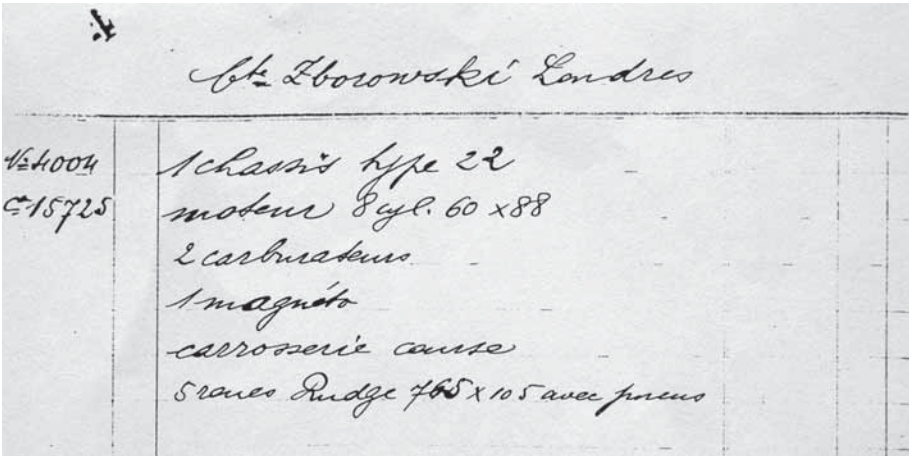 Cte Zborowski Londres
No 4004 1 chassis type 22
Ct 15725 moteur 8 cyl. 60 x 88
2 carburateurs
1 magnéto
carrosserie course
5 roues Rudge 765 x 105 avec pneus